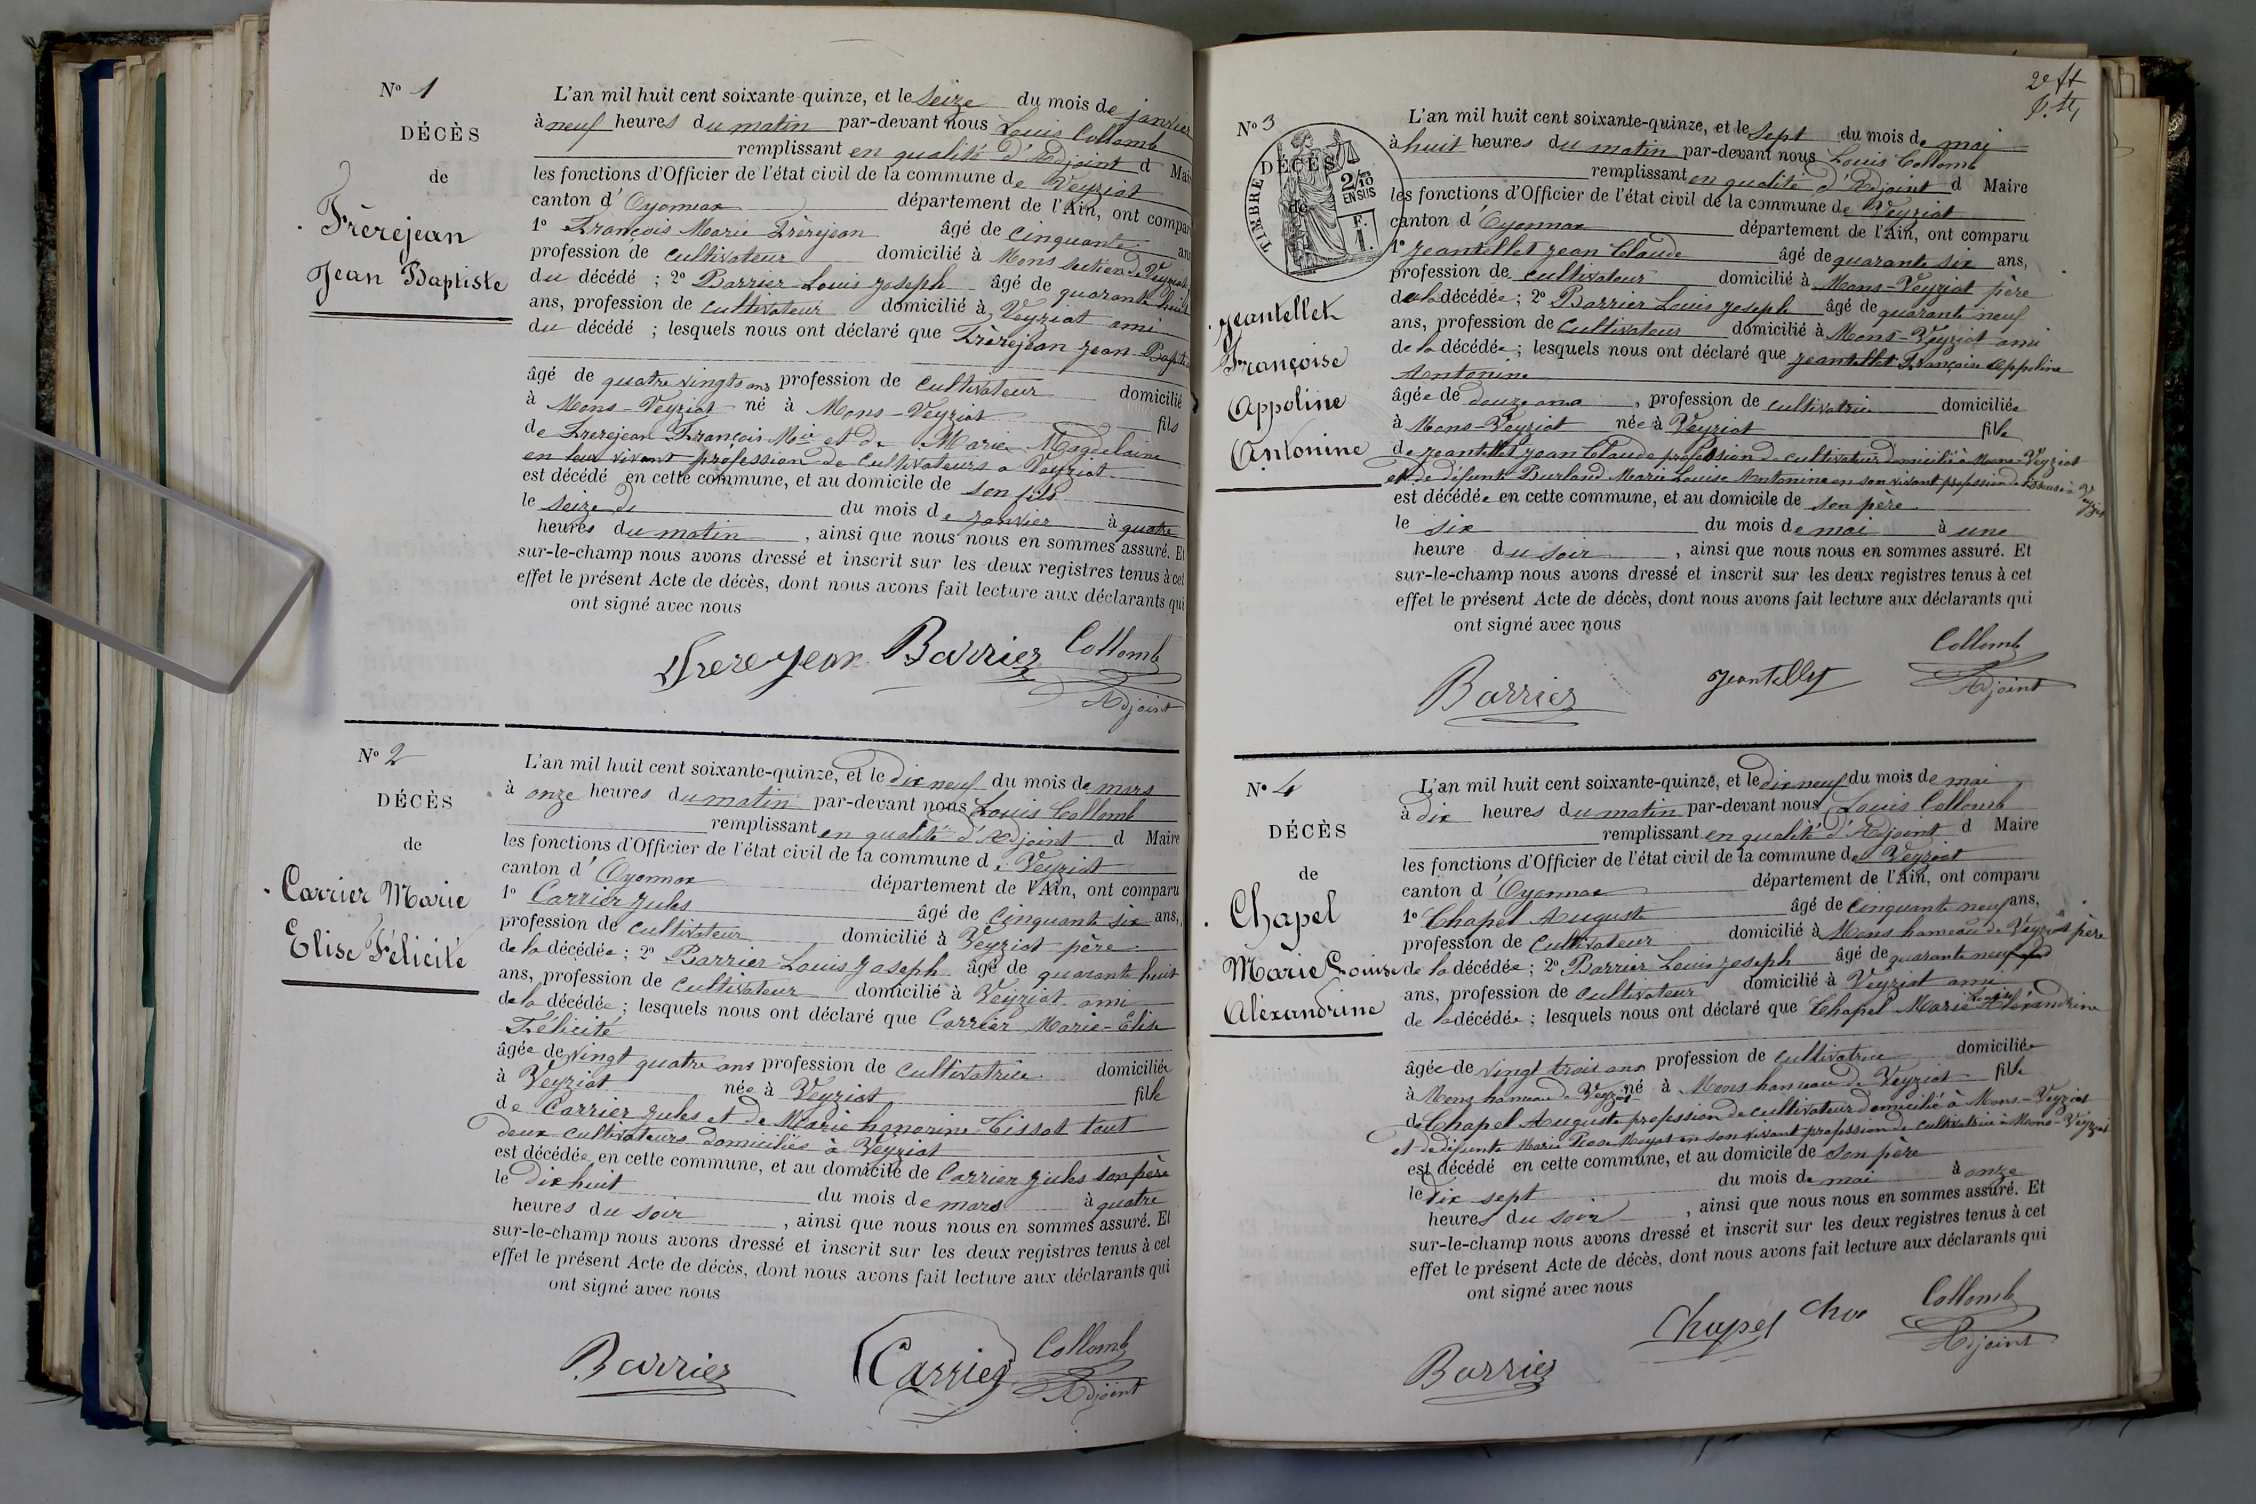 N° 1
DÉCÈS
de
Frèrejean
Jean Baptiste
L'an mil huit cent soixante-quinze, et le Seize du mois de janvier
à neuf heures du matin par-devant nous Louis Collomb
remplissant en qualité d'Adjoint d Mai
les fonctions d'Officier de l'état civil de la commune de Veyziat
canton d'Oyonnax département de l'Ain, ont compar
1° François Marie Frèrejean âgé de cinquante an
profession de cultivateur domicilié à Mons section de Veyziat
du décédé ; 2° Barrier Louis Joseph âgé de quarante huit
ans, profession de cultivateur domicilié à Veyziat ami
du décédé ; lesquels nous ont déclaré que Frèrejean Jean Baptis
âgé de quatre vingts ans profession de cultivateur domicilié
à Mons-Veyziat né à Mons-Veyziat fils
de Frerejean François Mie et de Marie Magdelaine
en leur vivant profession de cultivateurs a Veyziat
est décédé en cette commune, et au domicile de son fils
le seize de du mois de janvier à quatre
heures du matin , ainsi que nous nous en sommes assuré. Et
sur-le-champ nous avons dressé et inscrit sur les deux registres tenus à cet
effet le présent Acte de décès, dont nous avons fait lecture aux déclarants qui
ont signé avec nous
Frerejean Barrier Collomb
Adjoint
N° 2
DÉCÈS
de
Carrier Marie
Elise Félicité
L'an mil huit cent soixante-quinze, et le dix neuf du mois de mars
à onze heures du matin par-devant nous Louis Collomb
remplissant en qualité d'Adjoint d Maire
les fonctions d'Officier de l'état civil de la commune de Veyziat
canton d'Oyonnax département de l'Ain, ont comparu
1° Carrier Jules âgé de cinquante six ans,
profession de cultivateur domicilié à Veyziat père
de la décédée ; 2° Barrier Louis Joseph âgé de quarante huit
ans, profession de cultivateur domicilié à Veyziat ami
de la décédée ; lesquels nous ont déclaré que Carrier Marie-Elise
Félicité
âgée de vingt quatre ans profession de cultivatrice domiciliée
à Veyziat née à Veyziat fille
de Carrier Jules et de Marie honorine Tissot tout
deux cultivateurs domiciliés à Veyziat
est décédée en cette commune, et au domicile de Carrier Jules son père
le dix huit du mois de mars à quatre
heures du soir , ainsi que nous nous en sommes assuré. Et
sur-le-champ nous avons dressé et inscrit sur les deux registres tenus à cet
effet le présent Acte de décès, dont nous avons fait lecture aux déclarants qui
ont signé avec nous
Barrier Carrier Collomb
Adjoint
2e ft
N° 3
DÉCÈS
de
TIMBRE
2/10
EN SUS
F.
1.
Jeantellet
Françoise
Appoline
Antonine
L'an mil huit cent soixante-quinze, et le Sept du mois de mai
à huit heures du matin par-devant nous Louis Collomb
remplissant en qualité d'Adjoint d Maire
les fonctions d'Officier de l'état civil de la commune de Veyziat
canton d'Oyonnax département de l'Ain, ont comparu
1° Jeantellet Jean Claude âgé de quarante six ans,
profession de cultivateur domicilié à Mons-Veyziat père
de la décédée ; 2° Barrier Louis Joseph âgé de quarante neuf
ans, profession de cultivateur domicilié à Mons-Veyziat ami
de la décédée ; lesquels nous ont déclaré que Jeantellet Françoise Appoline
Antonine
âgée de douze ans , profession de cultivatrice domiciliée
à Mons-Veyziat née à Veyziat fille
de Jeantellet Jean Claude profession de cultivateur domicilié à Mons-Veyziat
et de défunte Burland Marie Louise Antonine en son vivant profession de
est décédée en cette commune, et au domicile de son père
le six du mois de mai à une
heure du soir , ainsi que nous nous en sommes assuré. Et
sur-le-champ nous avons dressé et inscrit sur les deux registres tenus à cet
effet le présent Acte de décès, dont nous avons fait lecture aux déclarants qui
ont signé avec nous
Barrier Jeantellet Collomb
Adjoint
N° 4
DÉCÈS
de
Chapel
Marie Louise
Alexandrine
L'an mil huit cent soixante-quinze, et le dix neuf du mois de mai
à dix heures du matin par-devant nous Louis Collomb
remplissant en qualité d'Adjoint d Maire
les fonctions d'Officier de l'état civil de la commune de Veyziat
canton d'Oyonnax département de l'Ain, ont comparu
1° Chapel Auguste âgé de cinquante neuf ans,
profession de cultivateur domicilié à Mons hameau de Veyziat père
de la décédée ; 2° Barrier Louis Joseph âgé de quarante neuf
ans, profession de cultivateur domicilié à Veyziat ami
de la décédée ; lesquels nous ont déclaré que Chapel Marie Louise Alexandrine
âgée de vingt trois ans profession de cultivatrice domiciliée
à Mons hameau de Veyziat né à Mons hameau de Veyziat fille
de Chapel Auguste profession de cultivateur domicilié à Mons-Veyziat
et de défunte Marie Rose Moyat en son vivant profession de cultivatrice à Mons-Veyziat
est décédé en cette commune, et au domicile de son père
le dix sept du mois de mai à onze
heures du soir , ainsi que nous nous en sommes assuré. Et
sur-le-champ nous avons dressé et inscrit sur les deux registres tenus à cet
effet le présent Acte de décès, dont nous avons fait lecture aux déclarants qui
ont signé avec nous
Barrier Chapel Collomb
Adjoint